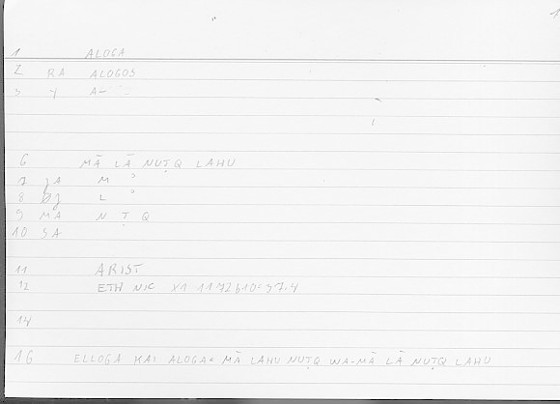 1
1 ALOGA
2 RA ALOGOS
3 Y A-
6 MĀ LĀ NUṬQ LAHU
7 JA M
8 L
9 MA N Ṭ Q
10 SA
11 ARIST
12 ETH NIC X1 1172b10
14
16 ELLOGA KAI ALOGA= MĀ LAHU NUṬQ WA-MĀ LĀ NUṬQ LAHU